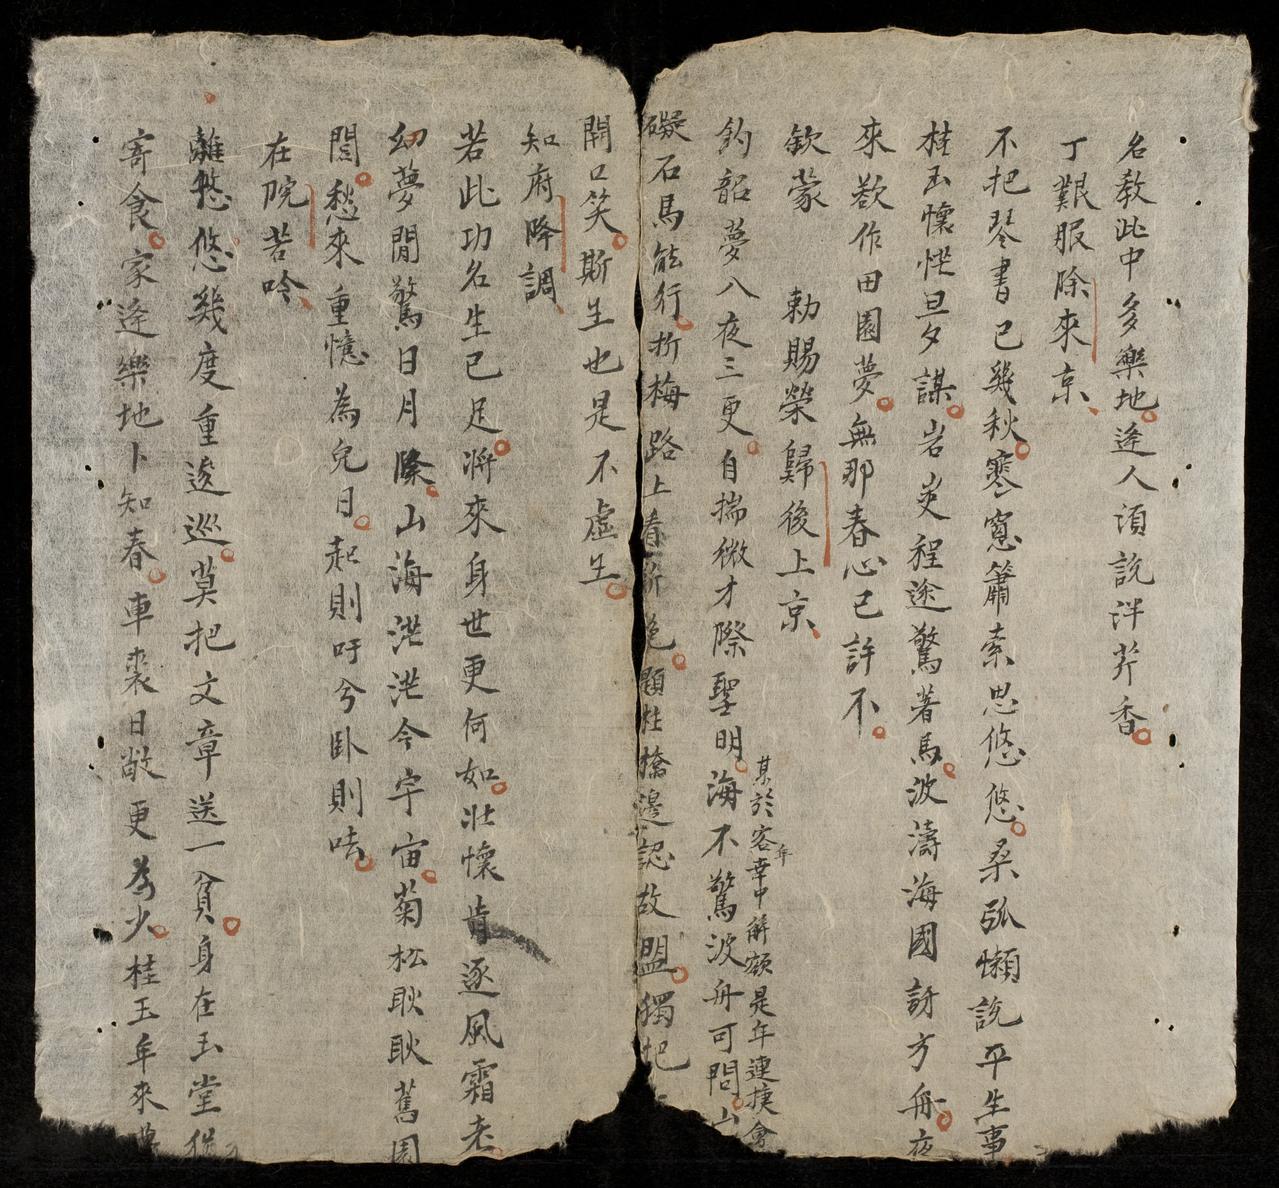 名教此中多樂地逄人須説泮芹香
丁艱服除來京
不把琴書已幾秋寒窓簫索思悠悠桑弧懶説平生事
桂玉懷恾旦夕謀岩嶤程途驚著馬波濤海國訝方舟夜
來欲作田園夢無那春心已許不
欽蒙 勅賜榮歸後上京
鈞韶夢八夜三更自揣微才際聖明海不驚波舟可問山
某於客年幸中解額是年連捷會
礙石馬能行折梅路上看新色題柱橋邊認故盟獨把
開口笑斯生也是不虛生
知府降調
若此功名生已足將來身世更何如壯懷肯逐風霜老
幻夢閒驚日月隊山海茫茫今宇宙菊松耿耿舊園
閭愁來重憶為兒日起則吁兮卧則呿
在院若吟
離愁悠幾度重逡巡莫把文章送一貧身在玉堂猶
寄食家逄樂地卜知春車裘日敝更為少桂玉年來